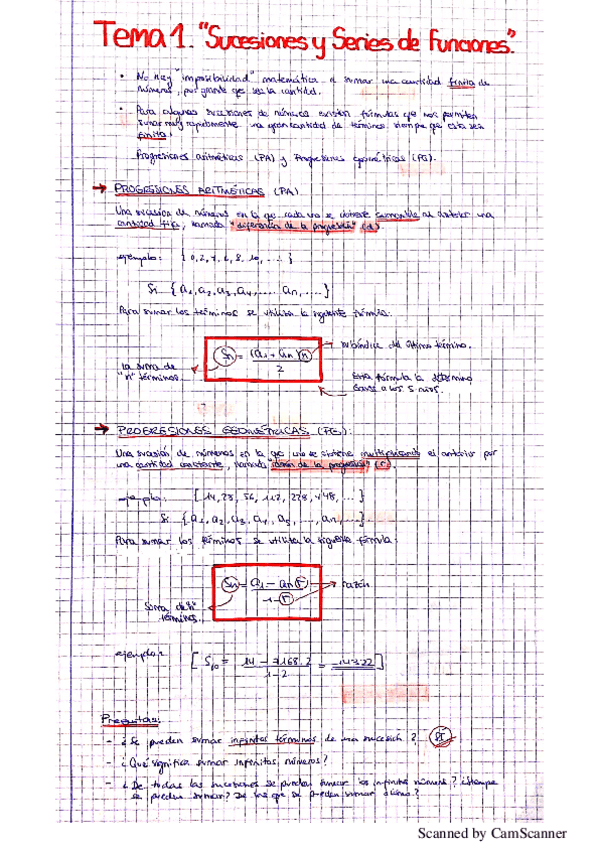 Tema 1. "Sucesiones y Series de Funciones".
• No hay "imposibilidad" matemática al sumar una cantidad finita de
números, por grande que sea la cantidad.
• Para algunas sucesiones de números existen fórmulas que nos permiten
sumar muy rápidamente una gran cantidad de términos siempre que esta sea
finita.
Progresiones aritméticas (PA) y Progresiones geométricas (PG).
→ PROGRESIONES ARITMÉTICAS (PA)
Una sucesión de números en la que cada uno se obtiene sumándole al anterior una
cantidad fija, llamada "diferencia de la progresión" (d).
ejemplo: {0, 2, 4, 6, 8, 10, ... }
Si {a1, a2, a3, a4, .... an, ....}
Para sumar los términos se utiliza la siguiente fórmula.
Sn = (a1 + an) n / 2
subíndice del último término.
la suma de
"n" términos.
Esta fórmula la determinó
Gauss a los 5 años.
→ PROGRESIONES GEOMÉTRICAS (PG):
Una sucesión de números en la que uno se obtiene multiplicando el anterior por
una cantidad constante, llamada "razón de la progresión" (r).
ejemplo: [14, 28, 56, 112, 224, 448, ... ]
Si {a1, a2, a3, a4, a5, ...., an, ...}
Para sumar los términos se utiliza la siguiente fórmula:
Sn = a1 - an r / 1 - r
razón
Suma de "n"
términos.
ejemplo: [ S10 = 14 - 7168·2 / 1-2 = 14322 ]
Preguntas:
- ¿Se pueden sumar infinitos términos de una sucesión? SI
- ¿Qué significa sumar infinitos números?
- ¿De todas las sucesiones se pueden sumar los infinitos números? ¿Siempre
se pueden sumar? De las que se pueden sumar ¿cómo?
Scanned by CamScanner